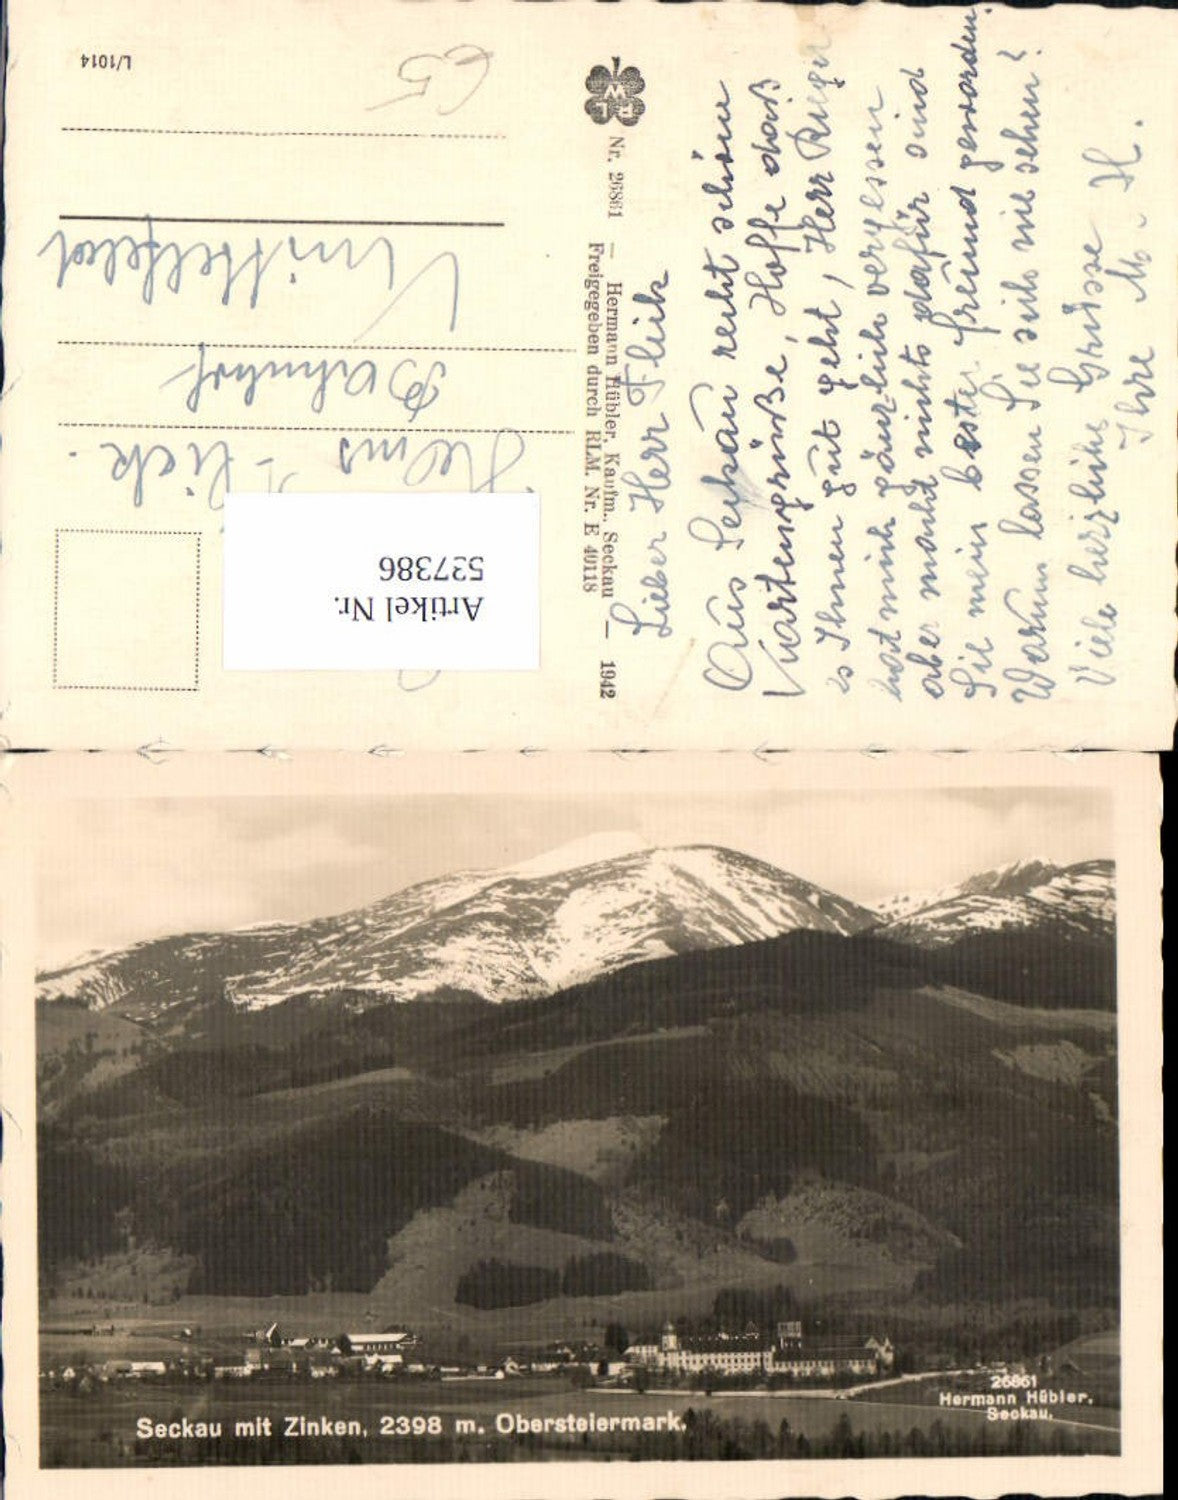 L/1014
65
Hans Flick.
Bahnhof
Knittelfeld
Artikel Nr.
537386
RLW
Nr. 26861 — Hermann Hübler, Kaufm., Seckau — 1942
Freigegeben durch RLM. Nr. E 40118
Lieber Herr Flick
Aus Seckau recht schöne
Kartengrüße, Hoffe daß
es Ihnen gut geht, Herr Rieger
hat mich gänzlich vergessen
aber macht nichts dafür sind
Sie mein bester Freund geworden.
Warum lassen Sie sich nie sehen?
Viele herzliche Grüsse
Ihre M. H.
26861
Hermann Hübler.
Seckau.
Seckau mit Zinken, 2398 m. Obersteiermark.